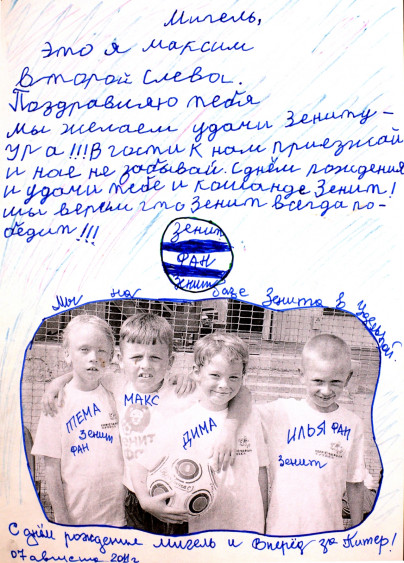 Мигель,
это я Максим
второй слева.
Поздравляю тебя
мы желаем удачи Зениту-
Ура!!! В гости к нам приезжай
и нас не забывай. С днём рождения
и удачи тебе и команде Зенит!
мы верим что Зенит всегда по-
бедит!!!
Зенит
ФАН
Зенит
Мы на базе Зенита в Удельной.
ТЕМА
Зенит
ФАН
МАКС
ДИМА
ИЛЬЯ ФАН
Зенит
С днём рождения Мигель и Вперёд за Питер!
07 августа 2011г